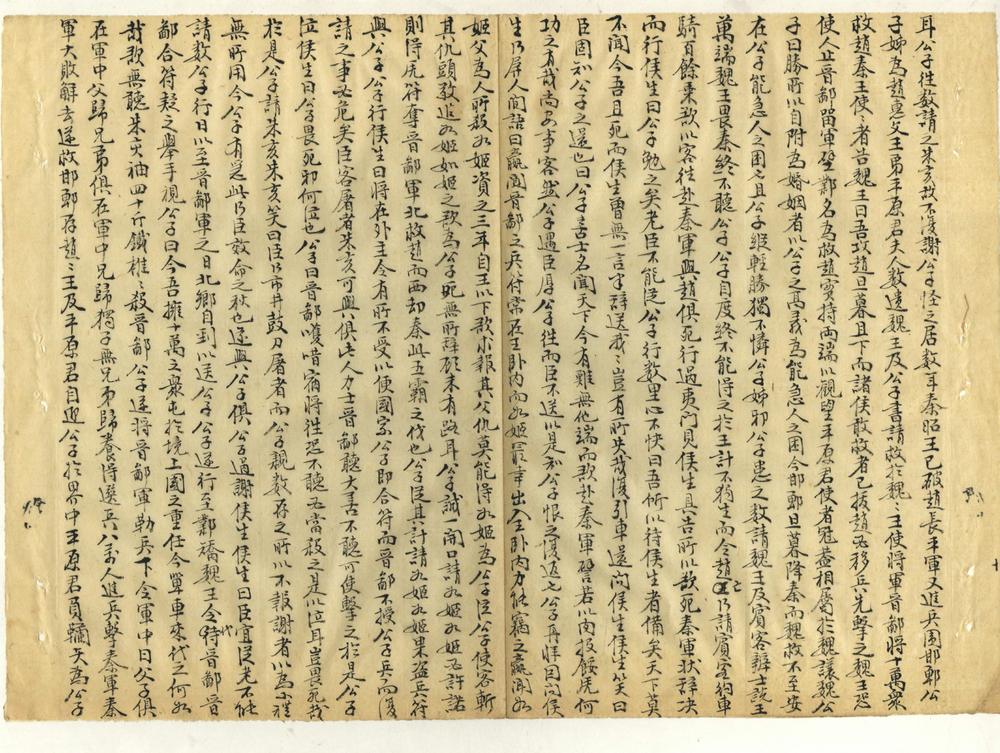 耳公子往數請之朱亥故不復謝公子怪之居數年秦昭王已破趙長平軍又進兵圍邯鄲公
子姊為趙惠文王弟平原君夫人數遺魏王及公子書請救於魏〻王使將軍晉鄙將十萬衆
救趙秦王使〻者告魏王曰吾攻趙旦暮且下而諸侯敢救者已拔趙必移兵先擊之魏王恐
使人止晉鄙留軍壁鄴名為救趙實持兩端以觀望平原君使者冠蓋相屬於魏讓魏公
子曰勝所以自附為婚姻者以公子之高義為能急人之困今邯鄲旦暮降秦而魏救不至安
在公子能急人之困也且公子縱輕勝獨不憐公子姊邪公子患之數請魏王及賓客辯士說王
萬端魏王畏秦終不聽公子公子自度終不能得之於王計不獨生而令趙亡乃請賓客約車
騎百餘乘欲以客往赴秦軍與趙俱死行過夷門見侯生具告所以欲死秦軍狀辭決
而行侯生曰公子勉之矣老臣不能從公子行數里心不快曰吾所以待侯生者備矣天下莫
不聞今吾且死而侯生曾無一言半辭送我〻豈有所失哉復引車還問侯生侯生笑曰
臣固知公子之還也曰公子喜士名聞天下今有難無他端而欲赴秦軍譬若以肉投餒虎何
功之有哉尚安事客然公子遇臣厚公子往而臣不送以是知公子恨之復返也公子再拜因問侯
生乃屏人間語曰嬴聞晉鄙之兵符常在王卧內而如姬最幸出入王卧內力能竊之嬴聞如
姬父為人所殺如姬資之三年自王以下欲求報其父仇莫能得如姬為公子泣公子使客斬
其仇頭敬進如姬如姬之欲為公子死無所辭顧未有路耳公子誠一開口請如姬如姬必許諾
則得虎符奪晉鄙軍北救趙而西却秦此五霸之伐也公子從其計請如姬如姬果盜兵符
與公子公子行侯生曰將在外主令有所不受以便國家公子即合符而晉鄙不授公子兵而復
請之事必危矣臣客屠者朱亥可與俱此人力士晉鄙聽大善不聽可使擊之於是公子
泣侯生曰公子畏死邪何泣也公子曰晉鄙嚄唶宿將往恐不聽必當殺之是以泣耳豈畏死哉
於是公子請朱亥朱亥笑曰臣乃市井鼓刀屠者而公子親數存之所以不報謝者以為小禮
無所用今公子有急此乃臣效命之秋也遂與公子俱公子過謝侯生侯生曰臣宜從老不能
請數公子行日以至晉鄙軍之日北鄉自剄以送公子公子遂行至鄴矯魏王令代晉鄙晉
鄙合符疑之舉手視公子曰今吾擁十萬之衆屯於境上國之重任今單車來代之何如
哉欲無聽朱亥袖四十斤鐵椎〻殺晉鄙公子遂將晉鄙軍勒兵下令軍中曰父子俱
在軍中父歸兄弟俱在軍中兄歸獨子無兄弟歸養得選兵八萬人進兵擊秦軍秦
軍大敗解去遂救邯鄲存趙〻王及平原君自迎公子於界中平原君負韊矢為公子